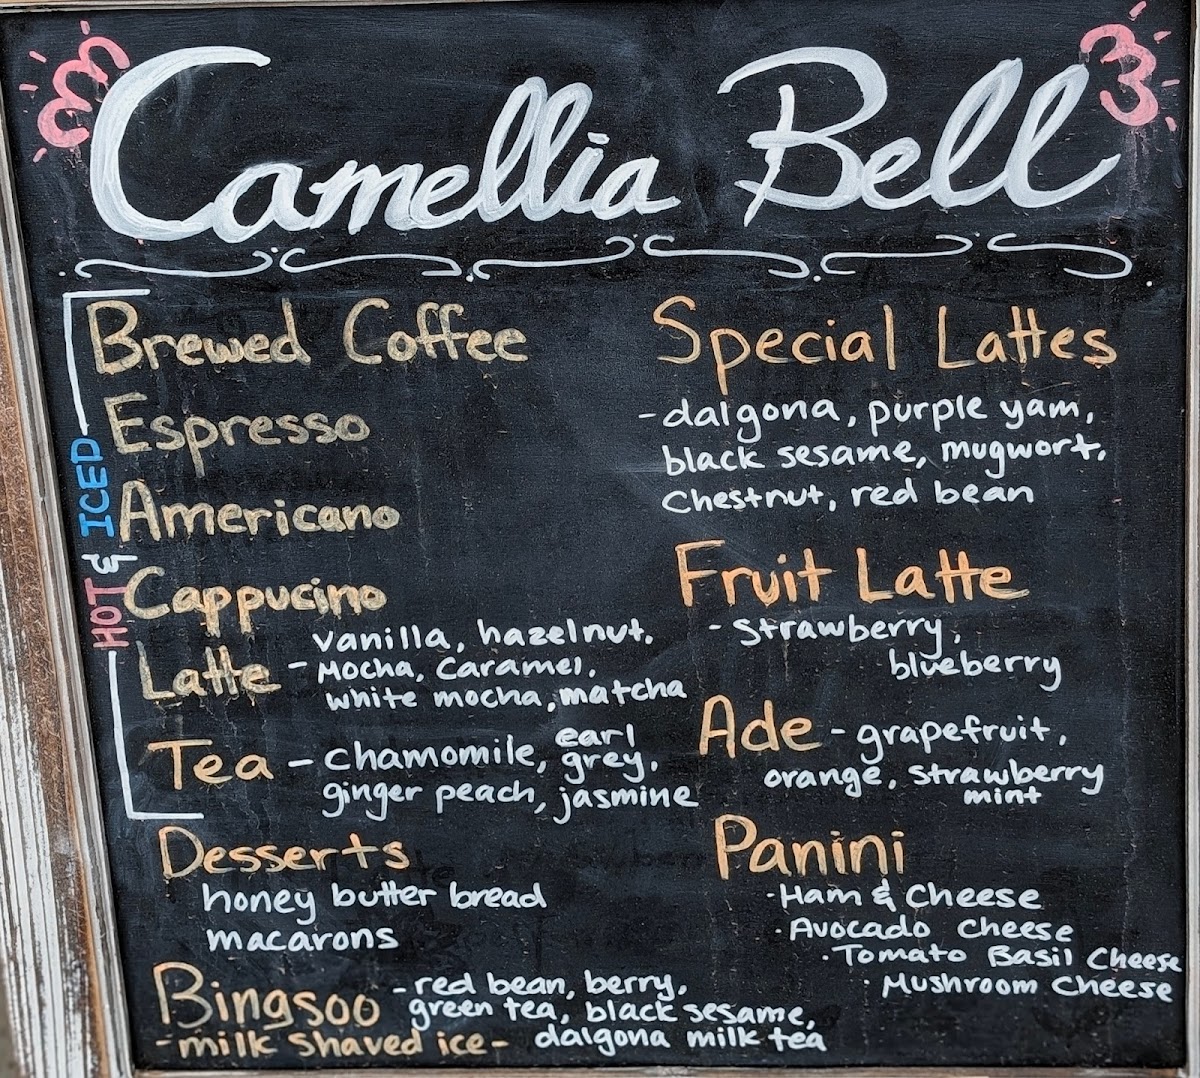 Camellia Bell
HOT & ICED
Brewed Coffee
Espresso
Americano
Cappucino
Latte - vanilla, hazelnut,
Mocha, Caramel,
white mocha, matcha
Tea - chamomile, earl grey,
ginger peach, jasmine
Desserts
honey butter bread
macarons
Bingsoo - red bean, berry,
green tea, black sesame,
- milk shaved ice - dalgona milk tea
Special Lattes
- dalgona, purple yam,
black sesame, mugwort,
Chestnut, red bean
Fruit Latte
- strawberry,
blueberry
Ade - grapefruit,
orange, strawberry
mint
Panini
· Ham & Cheese
· Avocado Cheese
· Tomato Basil Cheese
· Mushroom Cheese